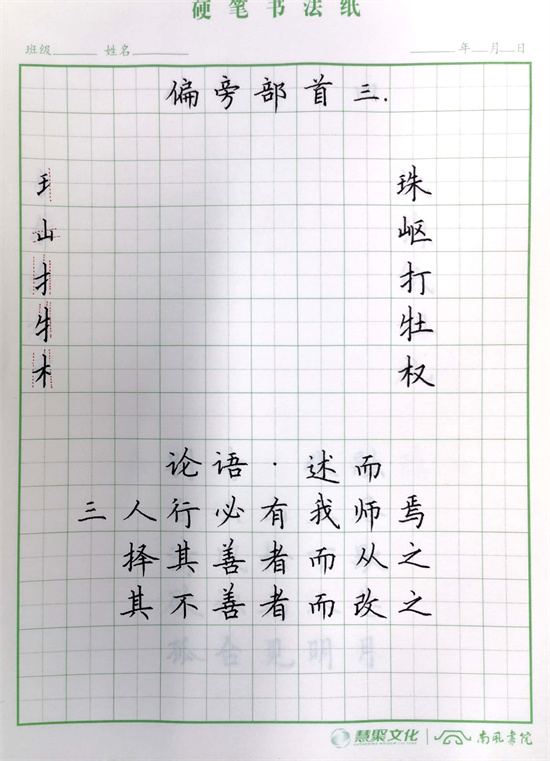 硬笔书法纸
班级 姓名 年 月 日
偏旁部首三.
王 珠
山 岖
扌 打
牜 牡
木 权
论语·述而
三人行必有我师焉
择其善者而从之
其不善者而改之
慧聚文化 南风书院